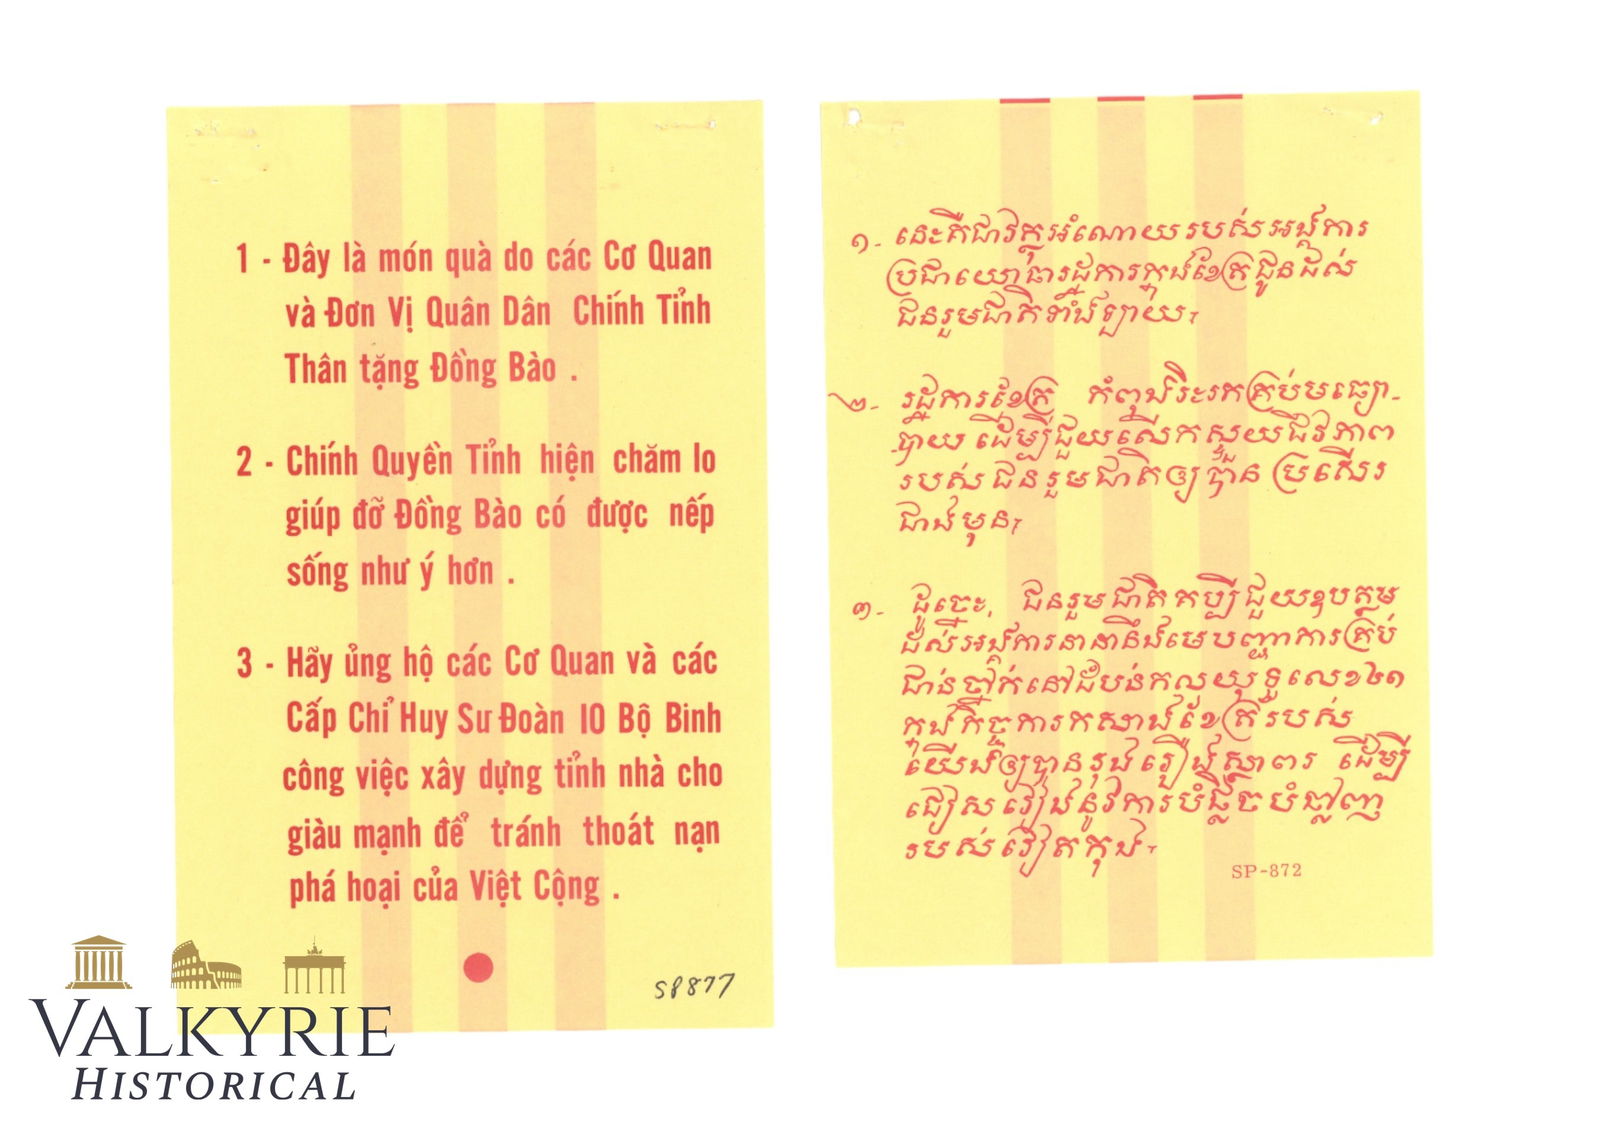 1 - Đây là món quà do các Cơ Quan
và Đơn Vị Quân Dân Chính Tỉnh
Thân tặng Đồng Bào .
2 - Chính Quyền Tỉnh hiện chăm lo
giúp đỡ Đồng Bào có được nếp
sống như ý hơn .
3 - Hãy ủng hộ các Cơ Quan và các
Cấp Chỉ Huy Sư Đoàn 10 Bộ Binh
công việc xây dựng tỉnh nhà cho
giàu mạnh để tránh thoát nạn
phá hoại của Việt Cộng .
SP877
១- នេះគឺជាវត្ថុអំណោយរបស់អង្គការ
ប្រជាយោធារដ្ឋការក្នុងខែត្រជូនដល់
ជនរួមជាតិទាំងឡាយ។
២- រដ្ឋការខែត្រ កំពុងរិះរកគ្រប់មធ្យោ-
-បាយ ដើម្បីជួយលើកស្ទួយជីវភាព
របស់ជនរួមជាតិឲ្យបានប្រសើរ
ជាងមុន។
៣- ដូច្នេះ, ជនរួមជាតិគប្បីជួយឧបត្ថម្ភ
ដល់អង្គការនានានឹងមេបញ្ជាការគ្រប់
ជាន់ថ្នាក់នៅដំបន់
ក្នុងកិច្ចការកសាងខែត្ររបស់
យើងឲ្យបានរុងរឿងស្ថាពរ ដើម្បី
ជៀសវៀងនូវការបំផ្លិចបំផ្លាញ
របស់វៀតកុង។
SP-872
VALKYRIE
HISTORICAL